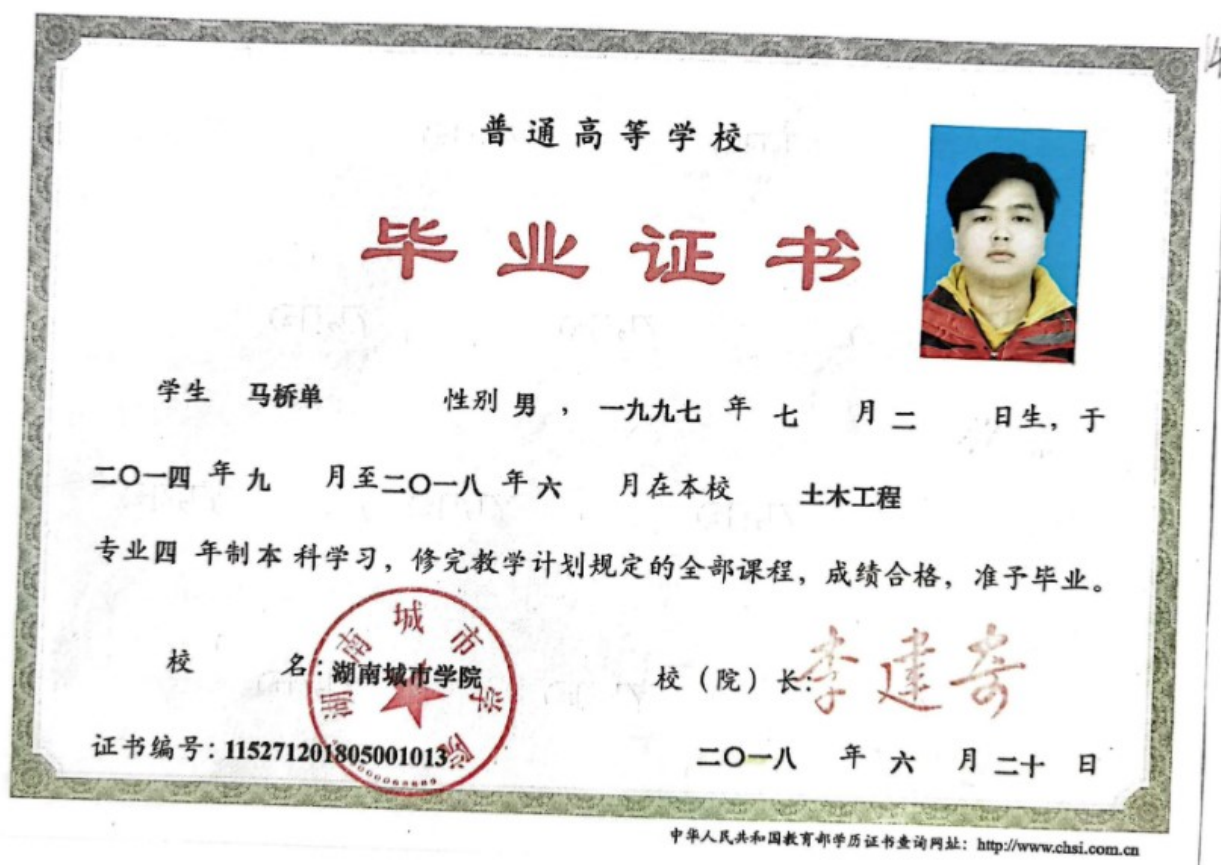 普通高等学校
毕业证书
学生 马桥单 性别 男 ， 一九九七 年 七 月 二 日生，于
二〇一四 年 九 月至 二〇一八 年 六 月在本校 土木工程
专业 四 年制 本 科学习，修完教学计划规定的全部课程，成绩合格，准予毕业。
湖南城市学院
校 名：湖南城市学院 校（院）长：李建奇
证书编号：115271201805001013 二〇一八 年 六 月 二十 日
中华人民共和国教育部学历证书查询网址：http://www.chsi.com.cn